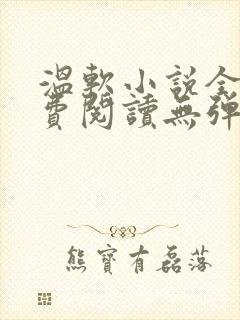 溫軟小說全
費閱讀無彈
熊寶有磊落